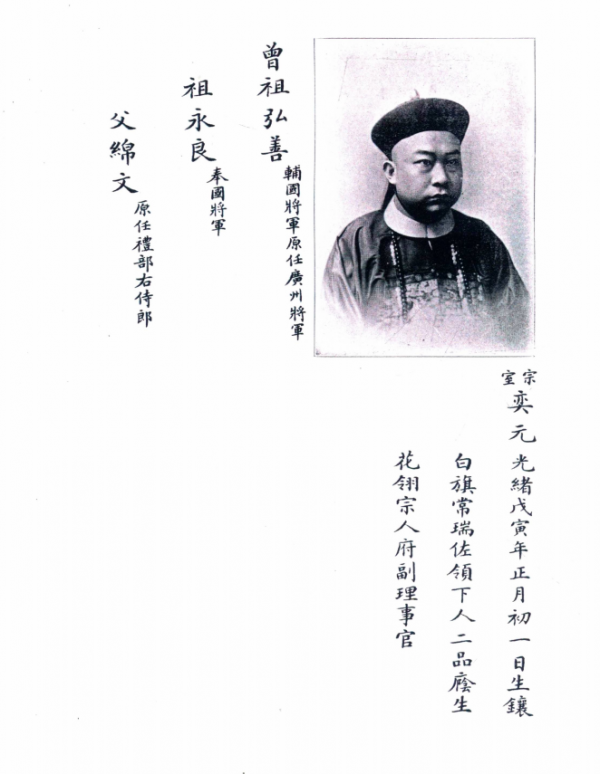 宗室
奕元光緒戊寅年正月初一日生鑲
白旗常瑞佐領下人二品廕生
花翎宗人府副理事官
曾祖弘善
輔國將軍原任廣州將軍
祖永良
奉國將軍
父綿文
原任禮部右侍郎